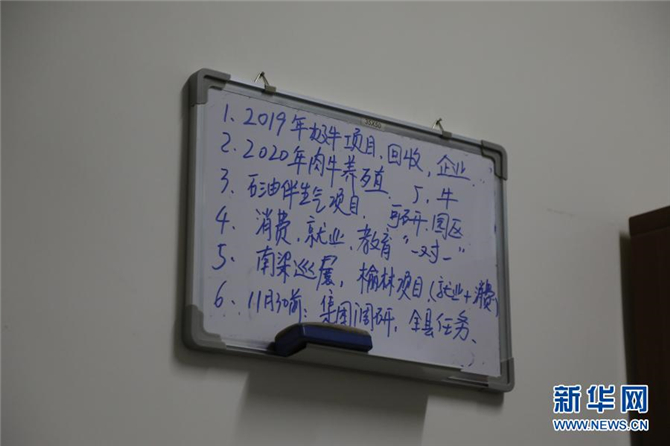 1、2019年奶牛项目、回收，企业、
2、2020年肉牛养殖、丁、牛
3、石油伴生气项目、可研、园区
4、消费、就业、教育“一对一”
5、南梁巡展，榆林项目（就业+消费）
6、11月30前：集团调研，全县任务、
新华网
WWW.NEWS.CN